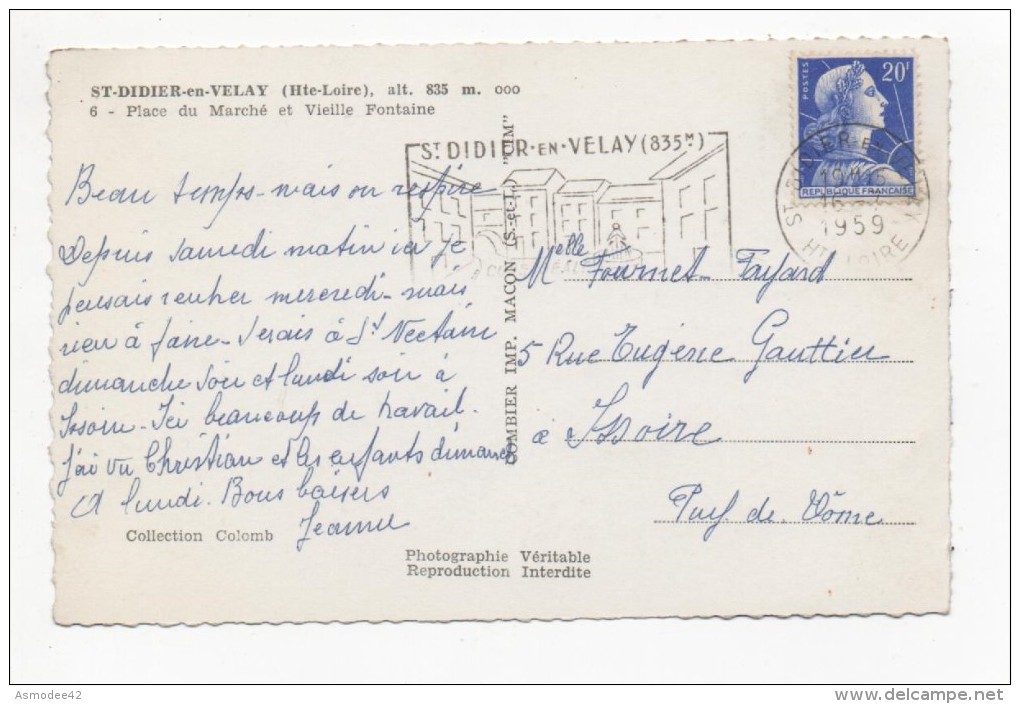 ST-DIDIER-en-VELAY (Hte-Loire), alt. 835 m. ooo
6 - Place du Marché et Vieille Fontaine
Beau temps - mais on respire
Depuis samedi matin ici je
pensais rentrer mercredi - mais
rien à faire - Serais à St Nectaire
dimanche soir et lundi soir à
Issoire - Ici beaucoup de travail.
J'ai vu Christian et les enfants dimanche
A lundi. Bons baisers
Jeanne
Collection Colomb
COMBIER IMP. MACON (S.-et-L.) "CIM"
Photographie Véritable
Reproduction Interdite
ST DIDIER-EN-VELAY (835M)
POSTES
20F
REPUBLIQUE FRANÇAISE
ST DIDIER EN VELAY
1959
HTE LOIRE
Melle Fournet-Fayard
5 Rue Eugène Gauttier
à Issoire
Puy de Dôme
Asmodee42
www.delcampe.net